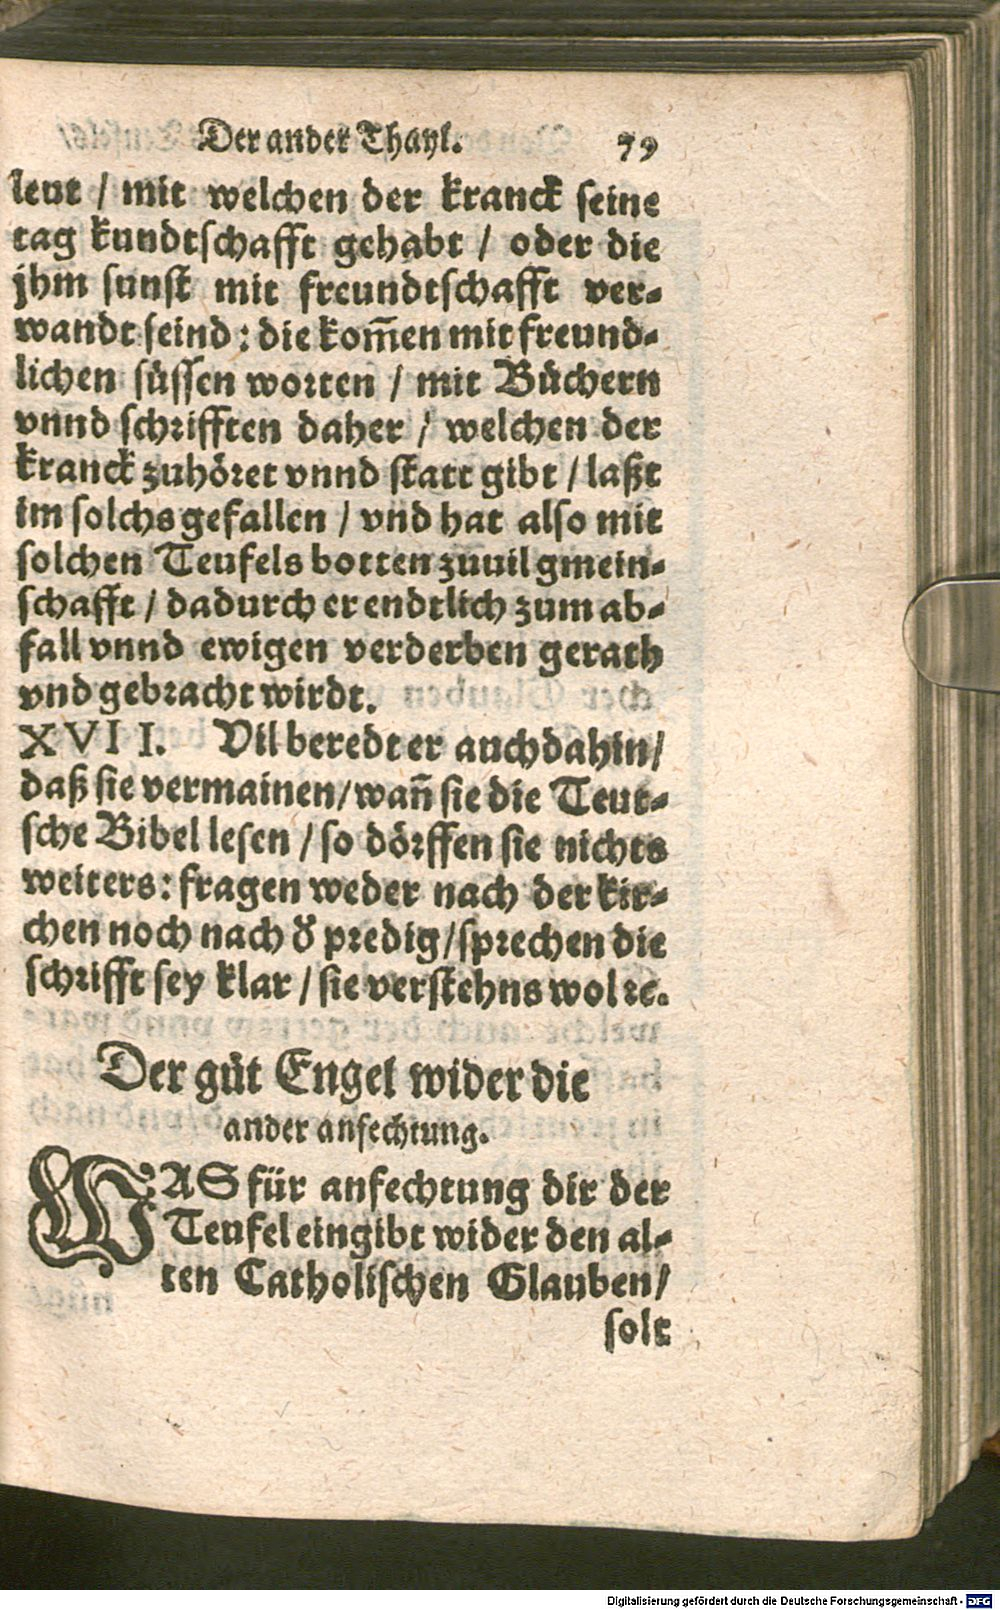 Der ander Thayl. 79
leut / mit welchen der kranck seine
tag kundtschafft gehabt / oder die
jhm sunst mit freundtschafft ver-
wandt seind : die kom̄en mit freund-
lichen süssen worten / mit Büchern
vnnd schrifften daher / welchen der
kranck zuhöret vnnd statt gibt / laßt
im solchs gefallen / vnd hat also mit
solchen Teufels botten zuuil gmein-
schafft / dadurch er endtlich zum ab-
fall vnnd ewigen verderben gerath
vnd gebracht wirdt.
XVII. Vil beredt er auch dahin /
daß sie vermainen / wan̄ sie die Teut-
sche Bibel lesen / so dörffen sie nichts
weiters : fragen weder nach der kir-
chen noch nach d̕ predig / sprechen die
schrifft sey klar / sie verstehns wol ꝛc.
Der gůt Engel wider die
ander anfechtung.
WAS für anfechtung dir der
Teufel eingibt wider den al-
ten Catholischen Glauben /
solt
Digitalisierung gefördert durch die Deutsche Forschungsgemeinschaft - DFG